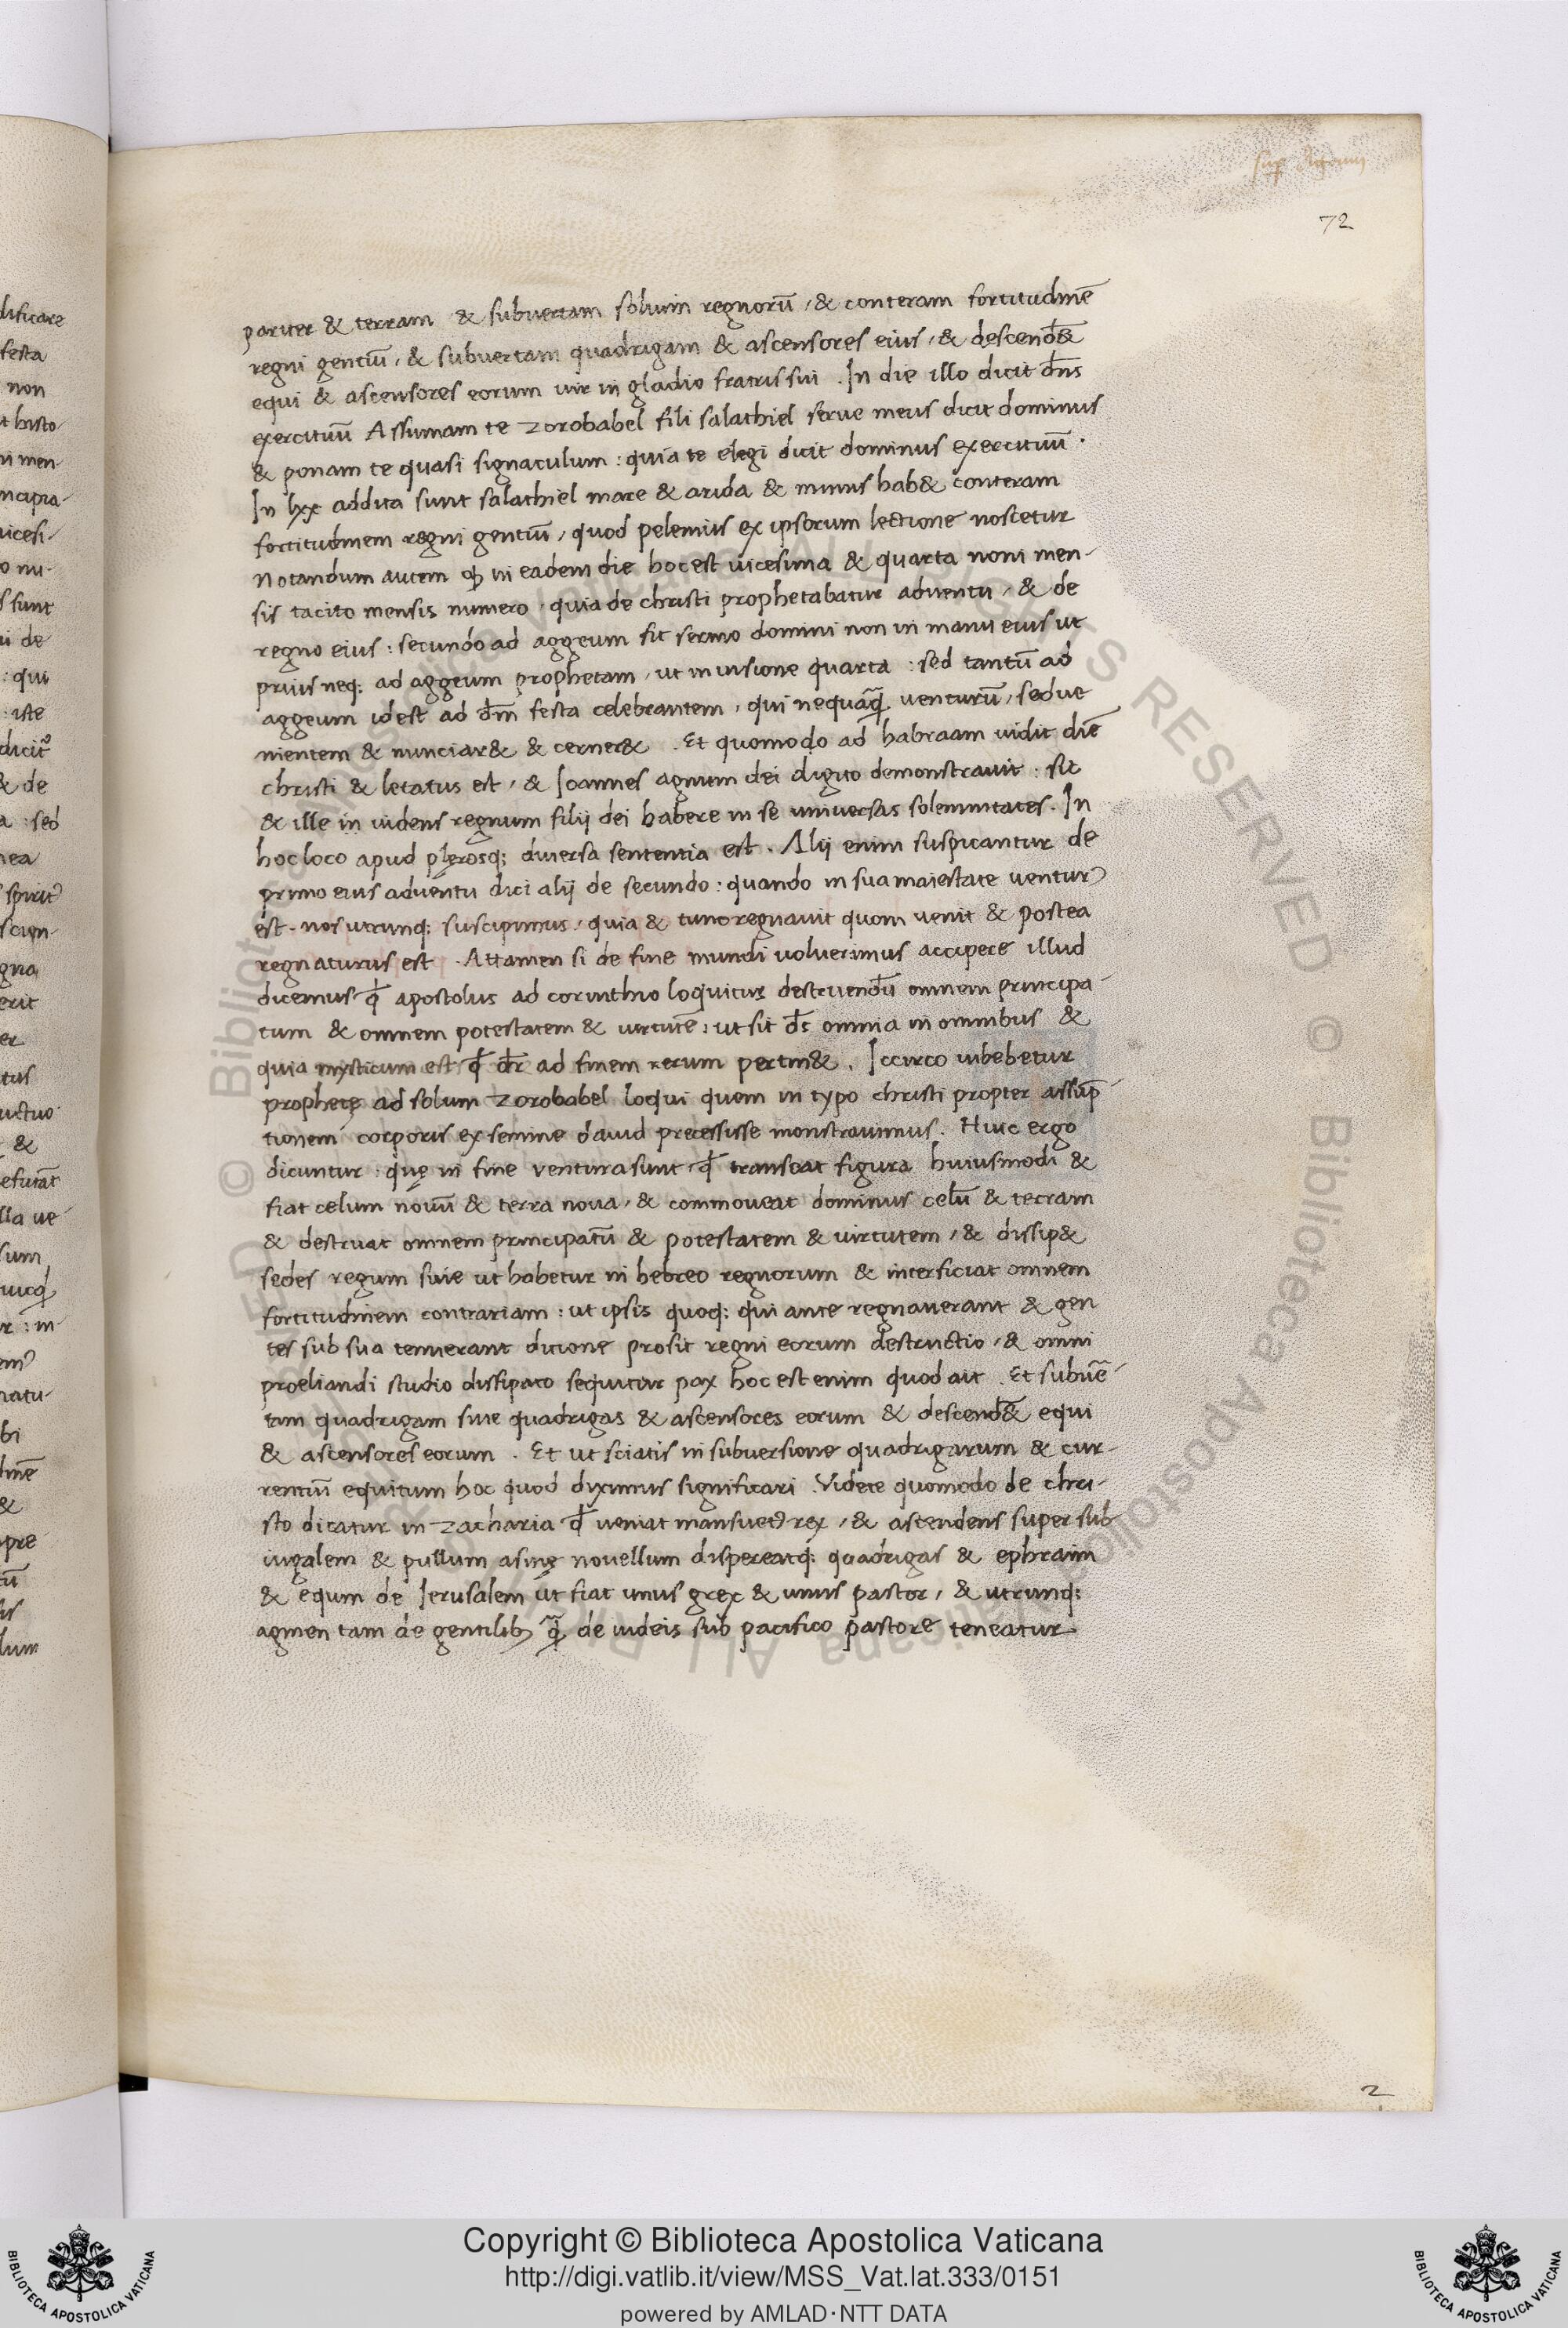 72
pariter & terram & subuertam solium regnorū, & conteram fortitudinē
regni gentiū, & subuertam quadrigam & ascensores eius, & descend&
equi & ascensores eorum uir in gladio fratris sui . In die illo dicit dn̄s
exercituū Assumam te zorobabel fili salathiel serue meus dicit dominus
& ponam te quasi signaculum : quia te elegi dicit dominus exercituū .
In lxx addita sunt salathiel mare & arida & minus hab& conteram
fortitudinem regni gentiū, quod pelemius ex ipsorum lectione noscetur
Notandum autem ꝙ in eadem die hoc est uicesima & quarta noni men-
sis tacito mensis numero, quia de christi prophetabatur aduentu, & de
regno eius : secundo ad aggeum fit sermo domini non in manu eius ut
prius neq; ad aggeum prophetam, ut in uisione quarta : sed tantū ad
aggeum idest ad dn̄i festa celebrantem, qui nequaq̄ venturū, sed ue
nientem & nunciar& & cerner& . Et quomodo ad habraam uidit diē
christi & letatus est, & Ioannes agnum dei digito demonstrauit : sic
& ille in uidens regnum filij dei habere in se uniuersas solemnitates. In
hoc loco apud plęrosq; diuersa sententia est . Alij enim suspicantur de
primo eius aduentu dici alij de secundo : quando in sua maiestate uenturꝰ
est. nos utrunq; suscipimus, quia & tunc regnauit quom venit & postea
regnaturus est . Attamen si de fine mundi uoluerimus accipere illud
dicemus qđ apostolus ad corinthio loquitur destruendū omnem principa-
tum & omnem potestatem & uirtutē : ut sit ds̄ omnia in omnibus &
quia mysticum est qđ dr̄ ad finem rerum pertin&. Iccirco iubebetur
prophetę ad solum zorobabel loqui quem in typo christi propter assūp-
tionem corporis ex semine dauid precessisse monstrauimus. Huic ergo
dicuntur : quę in fine ventura sunt, qđ transeat figura huiusmodi &
fiat celum nouū & terra noua, & commoueat dominus celū & terram
& destruat omnem principatū & potestatem & uirtutem, & dissip&
sedes regum siue ut habetur in hebreo regnorum & interficiat omnem
fortitudinem contrariam : ut ipsis quoq; qui ante regnauerant & gen
tes sub sua tenuerant dicione prosit regni eorum destructio, & omni
proeliandi studio dissipato sequitur pax hoc est enim quod ait . Et subuē-
tim quadrigam siue quadrigas & ascensores eorum & descend& equi
& ascensores eorum . Et ut sciatis in subuersione quadrigarum & cur-
rentiū equitum hoc quod diximus significari . Videte quomodo de chri-
sto dicatur in zacharia qđ ueniat mansuetꝰ rex, & ascendens super sub
iugalem & pullum asinę nouellum dispereatq; quadrigas & ephraim
& equm de Ierusalem ut fiat unus grex & unus pastor, & utrunq;
agmen tam de gentilibꝰ q̄ de iudeis sub pacifico pastore teneatur
2
Copyright © Biblioteca Apostolica Vaticana
http://digi.vatlib.it/view/MSS_Vat.lat.333/0151
powered by AMLAD·NTT DATA
BIBLIOTECA APOSTOLICA VATICANA
BIBLIOTECA APOSTOLICA VATICANA